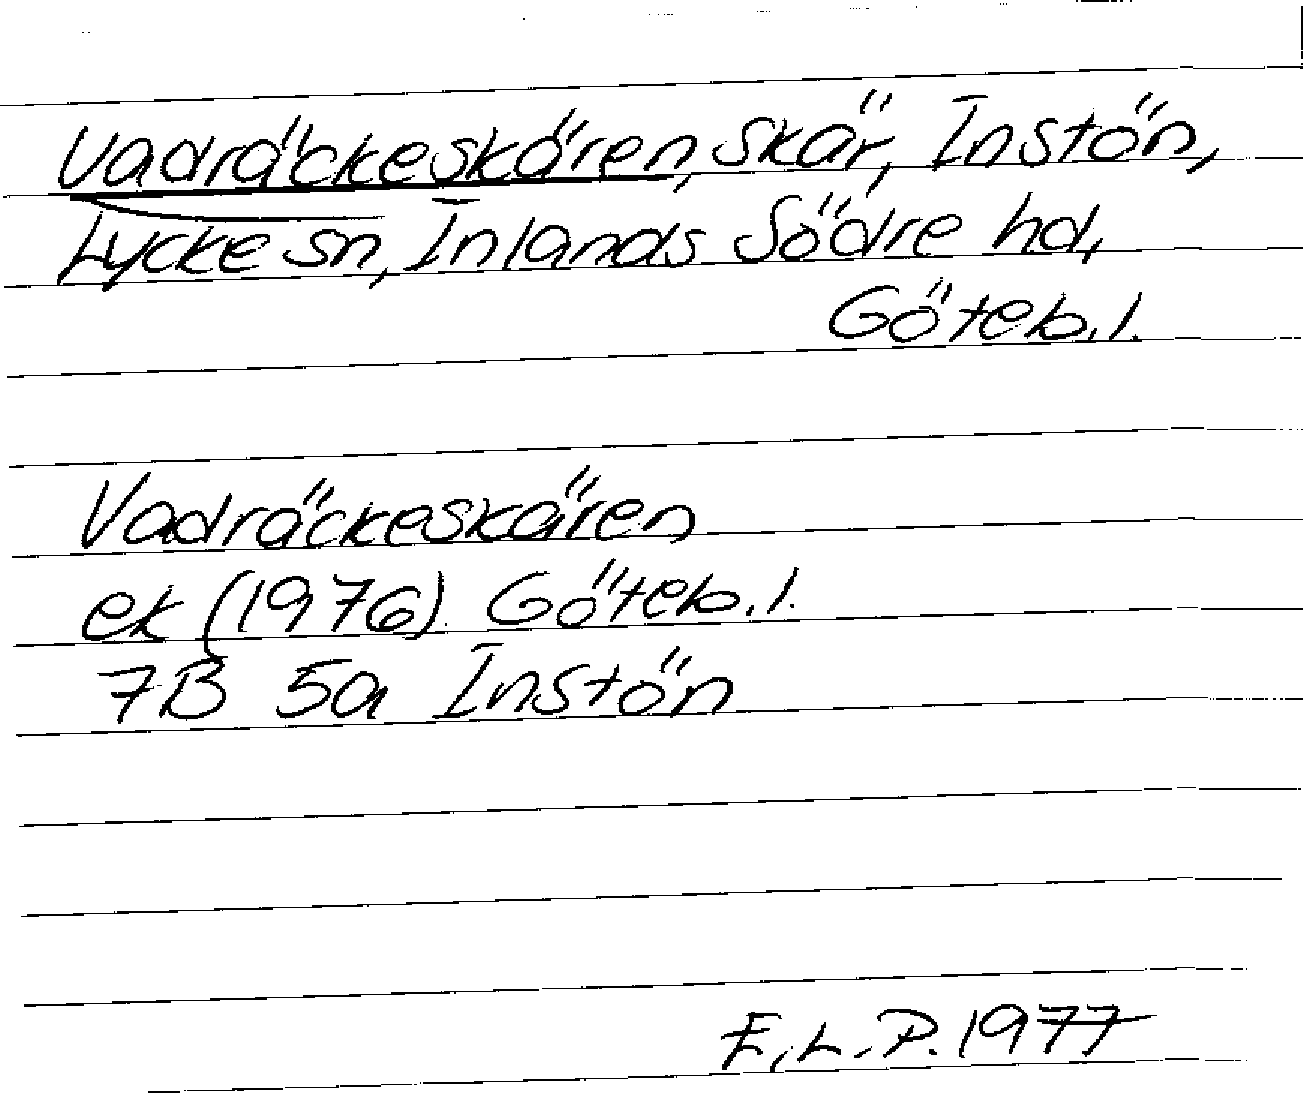 Vadräckeskären, skär, Instön,
Lycke sn, Inlands Södre hd,
Göteb.l.
Vadräckeskären
ek (1976) Göteb.l.
7B 5a Instön
E.L.P. 1977